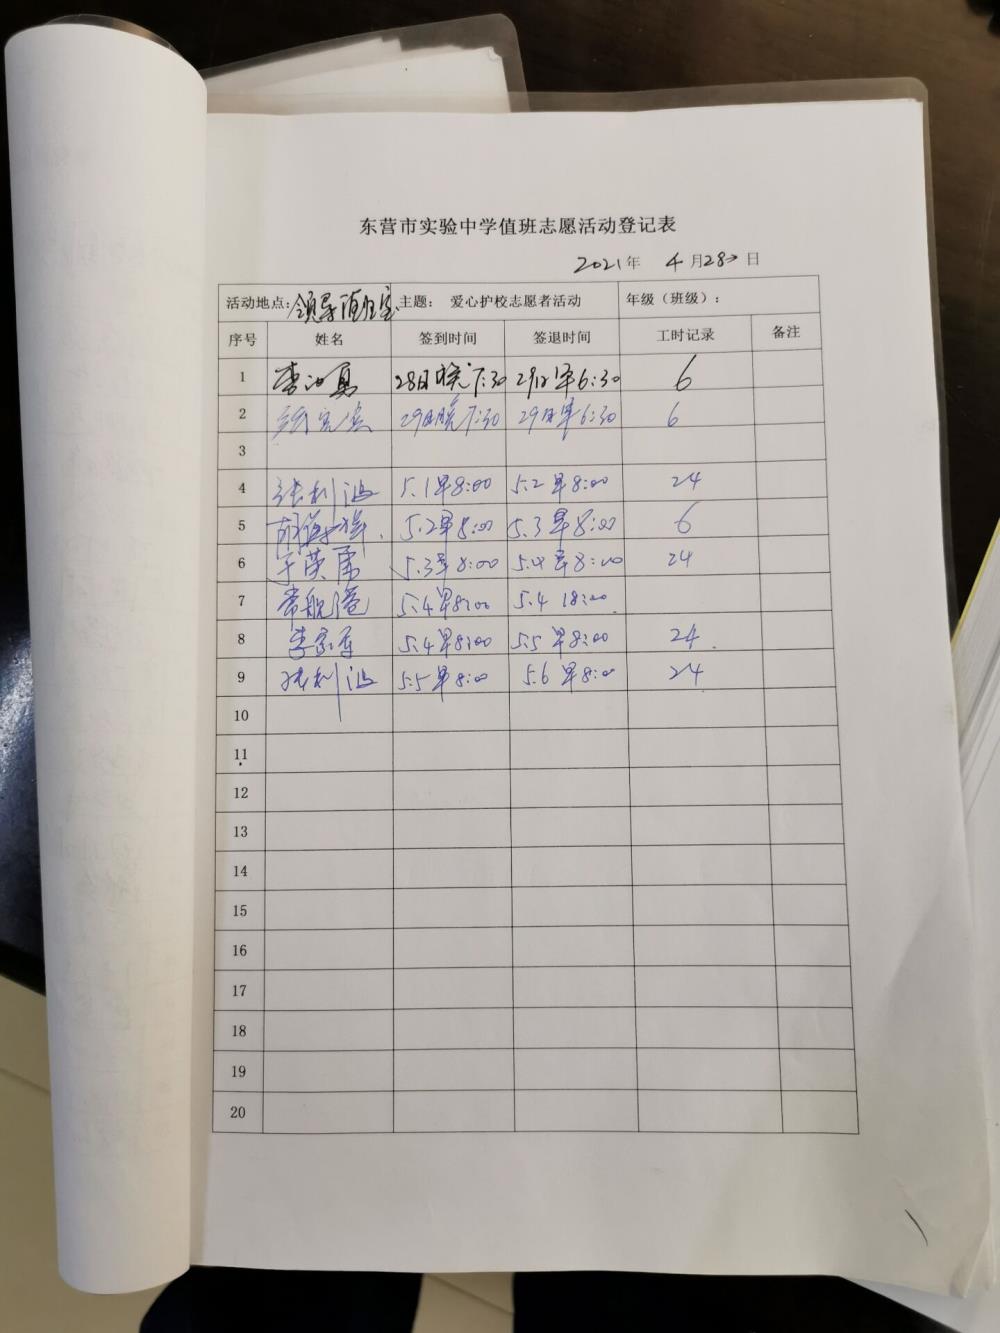 东营市实验中学值班志愿活动登记表
2021年 4月28日
活动地点: 领导值班室 主题： 爱心护校志愿者活动 年级（班级）：
序号 姓名 签到时间 签退时间 工时记录 备注
1 28日晚7:30 29日早6:30 6
2 29日晚7:30 29日早6:30 6
3
4 张利波 5.1早8:00 5.2早8:00 24
5 5.2早8:00 5.3早8:00 6
6 于英勇 5.3早8:00 5.4早8:00 24
7 5.4早8:00 5.4 18:00
8 李家军 5.4早8:00 5.5早8:00 24
9 张利波 5.5早8:00 5.6早8:00 24
10
11
12
13
14
15
16
17
18
19
20